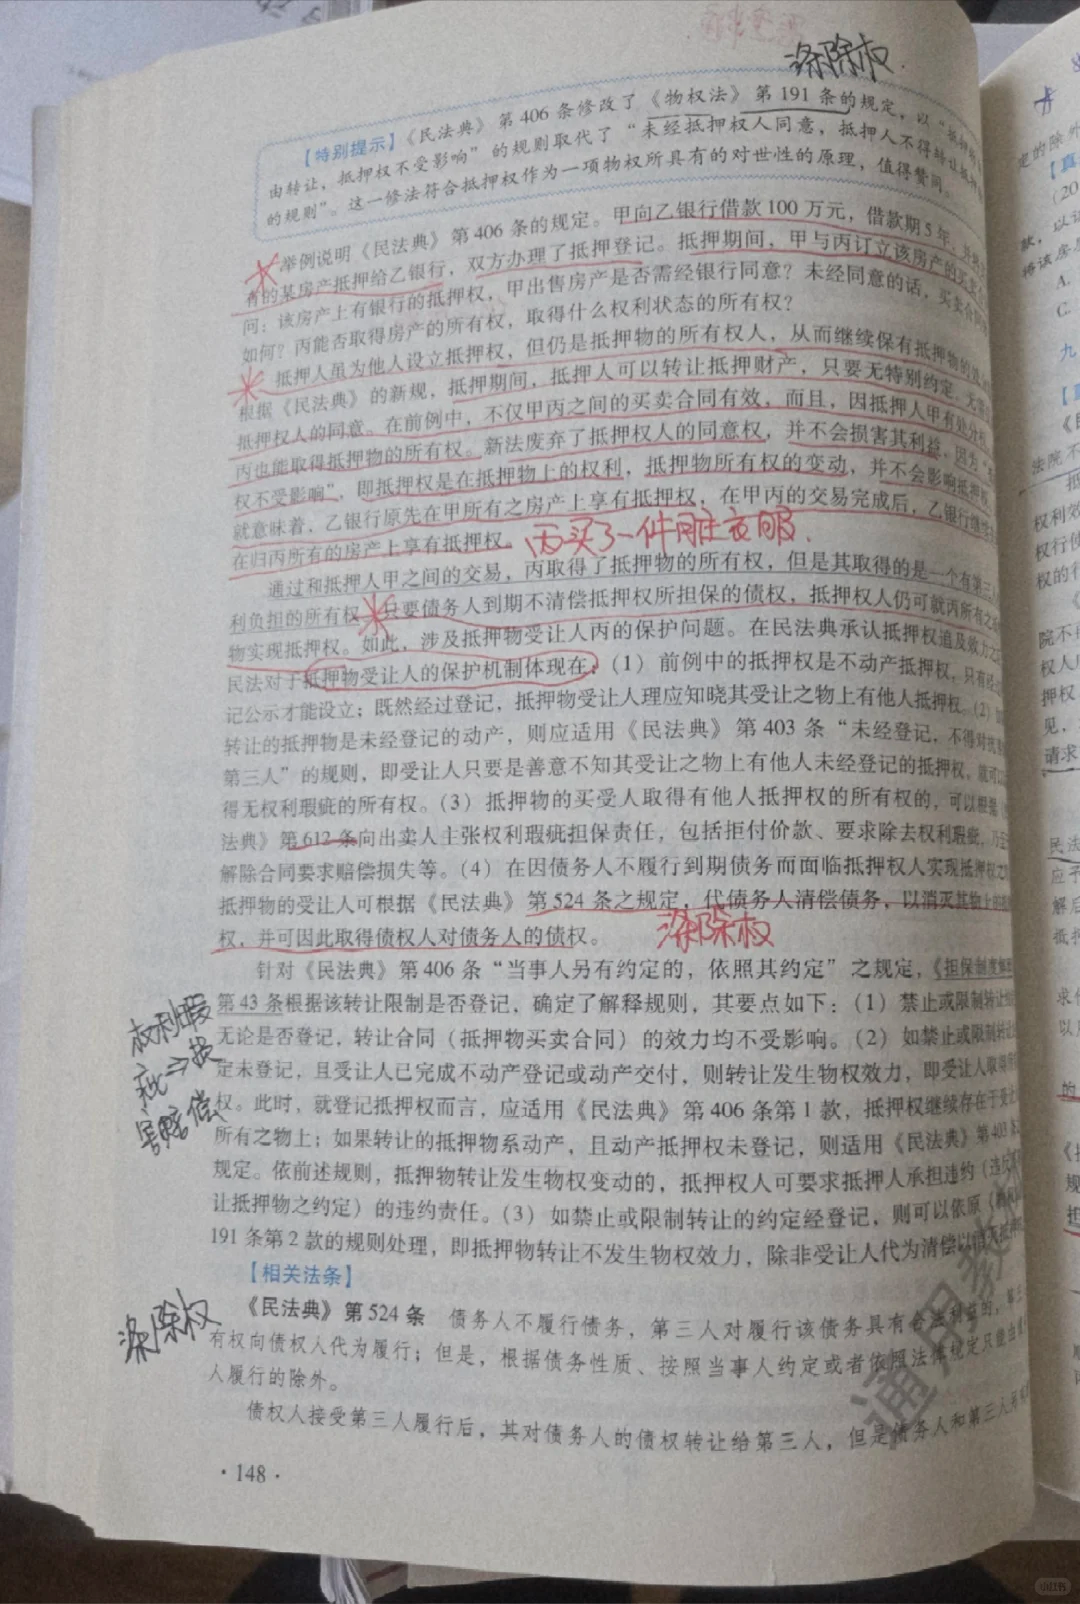 涤除权
【特别提示】《民法典》第406条修改了《物权法》第191条的规定，以“抵押
由转让，抵押权不受影响”的规则取代了“未经抵押权人同意，抵押人不得转让抵押
的规则”。这一修法符合抵押权作为一项物权所具有的对世性的原理，值得赞同。
举例说明《民法典》第406条的规定。甲向乙银行借款100万元，借款期5年，并将
有的某房产抵押给乙银行，双方办理了抵押登记。抵押期间，甲与丙订立该房产的买卖
问：该房产上有银行的抵押权，甲出售房产是否需经银行同意？未经同意的话，买卖合同
如何？丙能否取得房产的所有权，取得什么权利状态的所有权？
抵押人虽为他人设立抵押权，但仍是抵押物的所有权人，从而继续保有抵押物的处分
根据《民法典》的新规，抵押期间，抵押人可以转让抵押财产，只要无特别约定，无需
抵押权人的同意。在前例中，不仅甲丙之间的买卖合同有效，而且，因抵押人甲有处分权
丙也能取得抵押物的所有权。新法废弃了抵押权人的同意权，并不会损害其利益，因为“
权不受影响”，即抵押权是在抵押物上的权利，抵押物所有权的变动，并不会影响抵押权
就意味着，乙银行原先在甲所有之房产上享有抵押权，在甲丙的交易完成后，乙银行继续
在归丙所有的房产上享有抵押权。 丙买了一件脏衣服.
通过和抵押人甲之间的交易，丙取得了抵押物的所有权，但是其取得的是一个有第三人
利负担的所有权，只要债务人到期不清偿抵押权所担保的债权，抵押权人仍可就丙所有之
物实现抵押权。如此，涉及抵押物受让人丙的保护问题。在民法典承认抵押权追及效力之
民法对于抵押物受让人的保护机制体现在：（1）前例中的抵押权是不动产抵押权，只有经
记公示才能设立；既然经过登记，抵押物受让人理应知晓其受让之物上有他人抵押权。（2）如
转让的抵押物是未经登记的动产，则应适用《民法典》第403条“未经登记，不得对抗
第三人”的规则，即受让人只要是善意不知其受让之物上有他人未经登记的抵押权，就可以
得无权利瑕疵的所有权。（3）抵押物的买受人取得有他人抵押权的所有权的，可以根据
法典》第612条向出卖人主张权利瑕疵担保责任，包括拒付价款、要求除去权利瑕疵，乃至
解除合同要求赔偿损失等。（4）在因债务人不履行到期债务而面临抵押权人实现抵押权之
抵押物的受让人可根据《民法典》第524条之规定，代债务人清偿债务，以消灭其物上的
权，并可因此取得债权人对债务人的债权。 涤除权
针对《民法典》第406条“当事人另有约定的，依照其约定”之规定，《担保制度解
第43条根据该转让限制是否登记，确定了解释规则，其要点如下：（1）禁止或限制转让
无论是否登记，转让合同（抵押物买卖合同）的效力均不受影响。（2）如禁止或限制转让
定未登记，且受让人已完成不动产登记或动产交付，则转让发生物权效力，即受让人取得
权。此时，就登记抵押权而言，应适用《民法典》第406条第1款，抵押权继续存在于受让
所有之物上；如果转让的抵押物系动产，且动产抵押权未登记，则适用《民法典》第403条
规定。依前述规则，抵押物转让发生物权变动的，抵押权人可要求抵押人承担违约（违反
让抵押物之约定）的违约责任。（3）如禁止或限制转让的约定经登记，则可以依原
191条第2款的规则处理，即抵押物转让不发生物权效力，除非受让人代为清偿
权利瑕
疵⇒损
害赔偿
【相关法条】
《民法典》第524条 债务人不履行债务，第三人对履行该债务具有合法利益的，第三
有权向债权人代为履行；但是，根据债务性质、按照当事人约定或者依照法律规定只能由
人履行的除外。
债权人接受第三人履行后，其对债务人的债权转让给第三人，但是债务人和第三人另有
涤除权
·148·
小红书